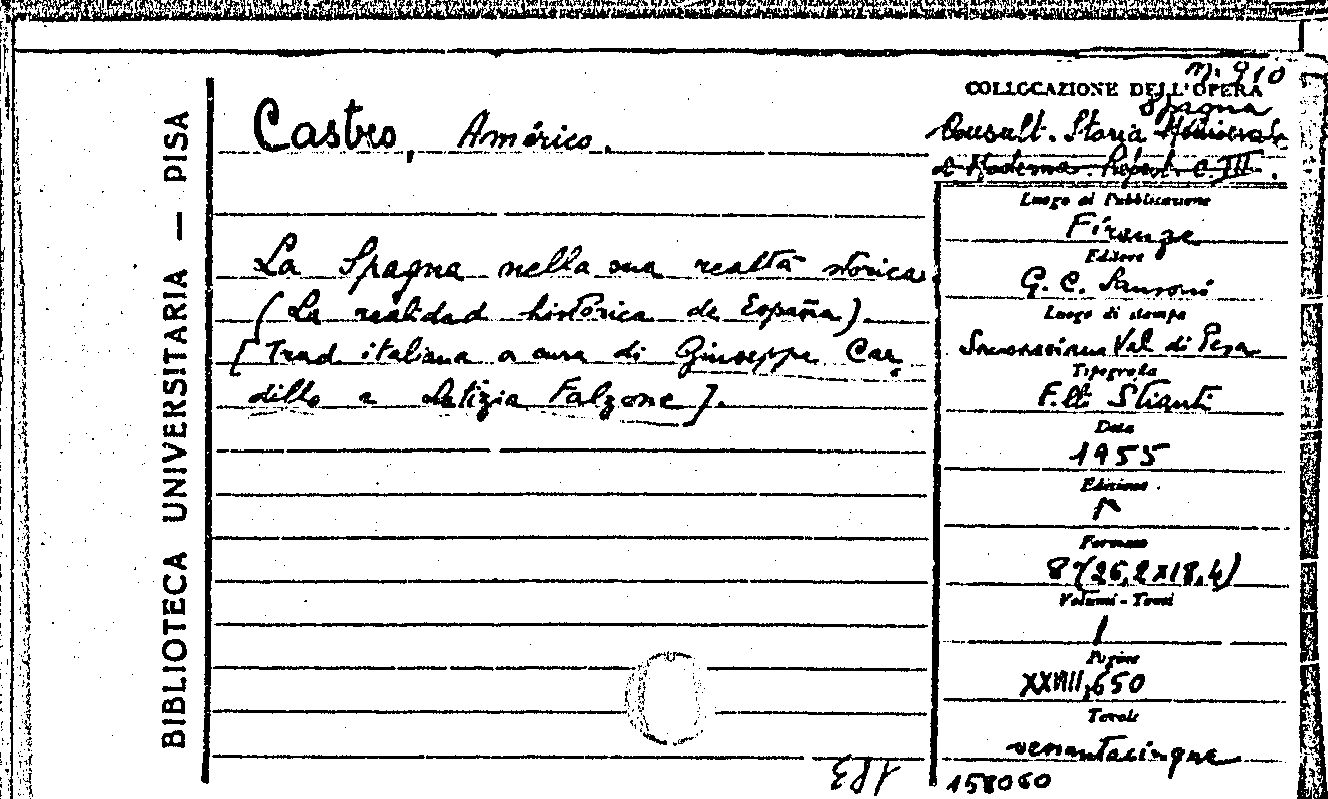 BIBLIOTECA UNIVERSITARIA — PISA
Castro, Américo.
La Spagna nella sua realtà storica
(La realidad histórica de España).
[Trad. italiana a cura di Giuseppe Car
dillo e Letizia Falzone].
n. 910
COLLOCAZIONE DELL'OPERA
Spagna
Consult. Storia Medioevale
e Moderna. Repert. C. III.
Luogo di Pubblicazione
Firenze
Editore
G. C. Sansoni
Luogo di stampa
Val di Pesa
Tipografia
F.lli Stianti
Data
1955
Edizione
Formato
8°(26,2x18,4)
Volumi - Tomi
1
Pagine
XXVIII,650
Tavole
158060